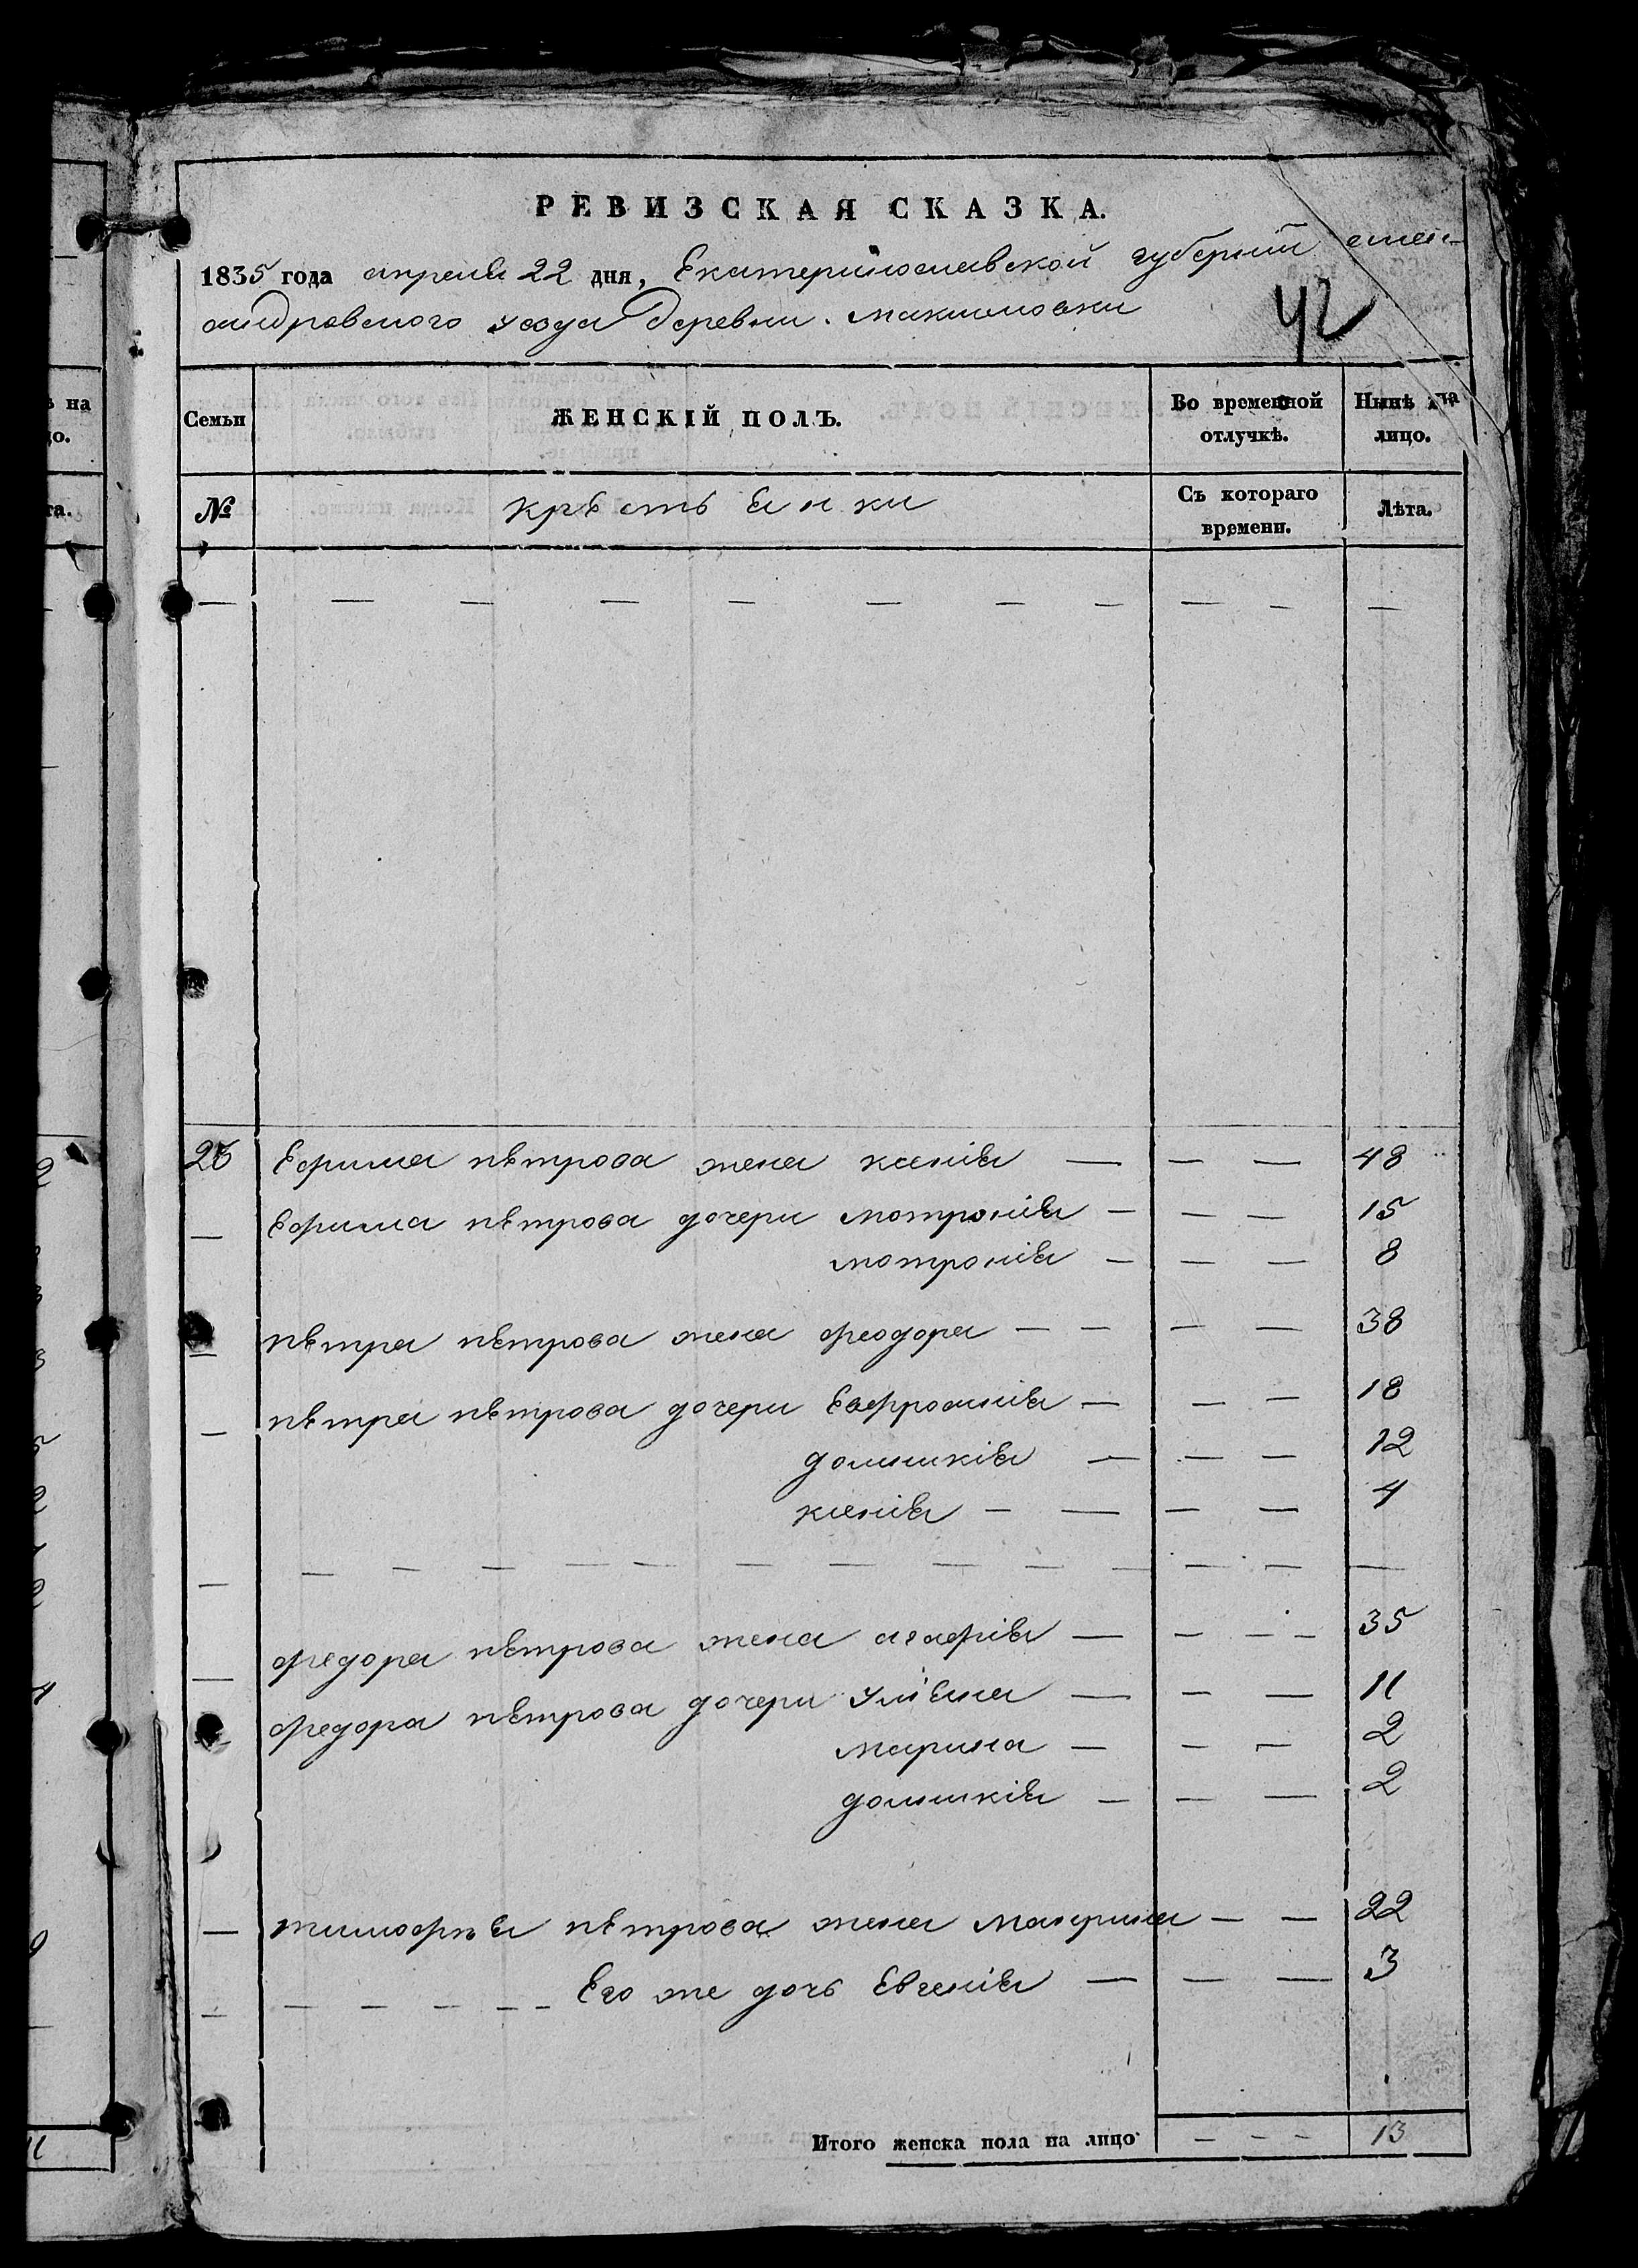 РЕВИЗСКАЯ СКАЗКА.
1835 года апреля 22 дня, Екатеринославской губернии алек-
андровского уезда деревни. максимовки
42
Семьи
ЖЕНСКІЙ ПОЛЪ.
Во временной отлучкѣ.
Нынѣ на лицо.
№
крѣстьянки
Съ котораго времени.
Лѣта.
— — — — — — — — — — —
25 Ефима пѣтрова жена ксенія — — — 48
— Ефима пѣтрова дочери мотронія — — — 15
мотронія — — — 8
— пѣтра пѣтрова жена феодора — — — — 38
— пѣтра пѣтрова дочери Евфросинія — — — 18
домникія — — — 12
ксенія — — — — 4
— — — — — — — — — — — — — —
— федора пѣтрова жена агафія — — — — 35
— федора пѣтрова дочери улияна — — — 11
марина — — — 2
домникія — — — 2
— тимофѣя пѣтрова жена макрина — — 22
— — — — — — Его же дочь Евгенія — — — 3
Итого женска пола на лицо — — — 13